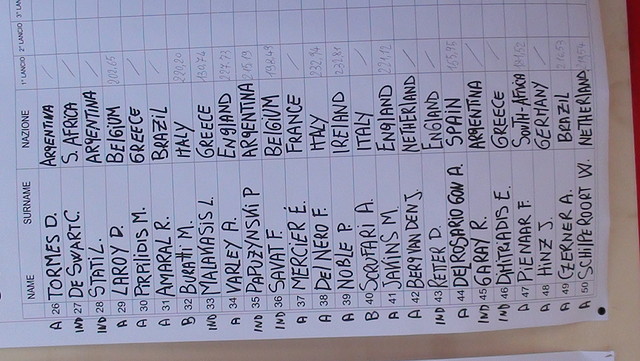 NAME SURNAME NAZIONE 1° LANCIO 2° LANCIO 3° LAN
A 26 TORMES D. ARGENTINA /
IND 27 DE SWART C. S. AFRICA /
IND 28 STATI L. ARGENTINA /
A 29 LAROY D. BELGIUM
A 30 PIRPILIDIS M. GREECE /
A 31 AMARAL R. BRAZIL /
B 32 BURATTI M. ITALY 229,20
IND 33 MALAVASIS L. GREECE
A 34 VARLEY A. ENGLAND 227,73
IND 35 PAPOZYNSKI P ARGENTINA
IND 36 SAVAT F. BELGIUM 198,49
A 37 MERCIER E. FRANCE /
A 38 DEL NERO F. ITALY 232,94
A 39 NOBLE P. IRELAND 232,81
B 40 SCROFARI A. ITALY /
A 41 JAKINS M. ENGLAND
A 42 BERG VAN DEN J. NETHERLAND /
IND 43 REITER D. ENGLAND /
A 44 DEL ROSARIO GON A. SPAIN
IND 45 GARAY R. ARGENTINA /
IND 46 DMITRIADIS E. GREECE /
A 47 PIENAAR F. SOUTH-AFRICA
A 48 HINZ J. GERMANY /
A 49 CZERNER A. BRAZIL
A 50 SCHILPEROORT W. NETHERLAND